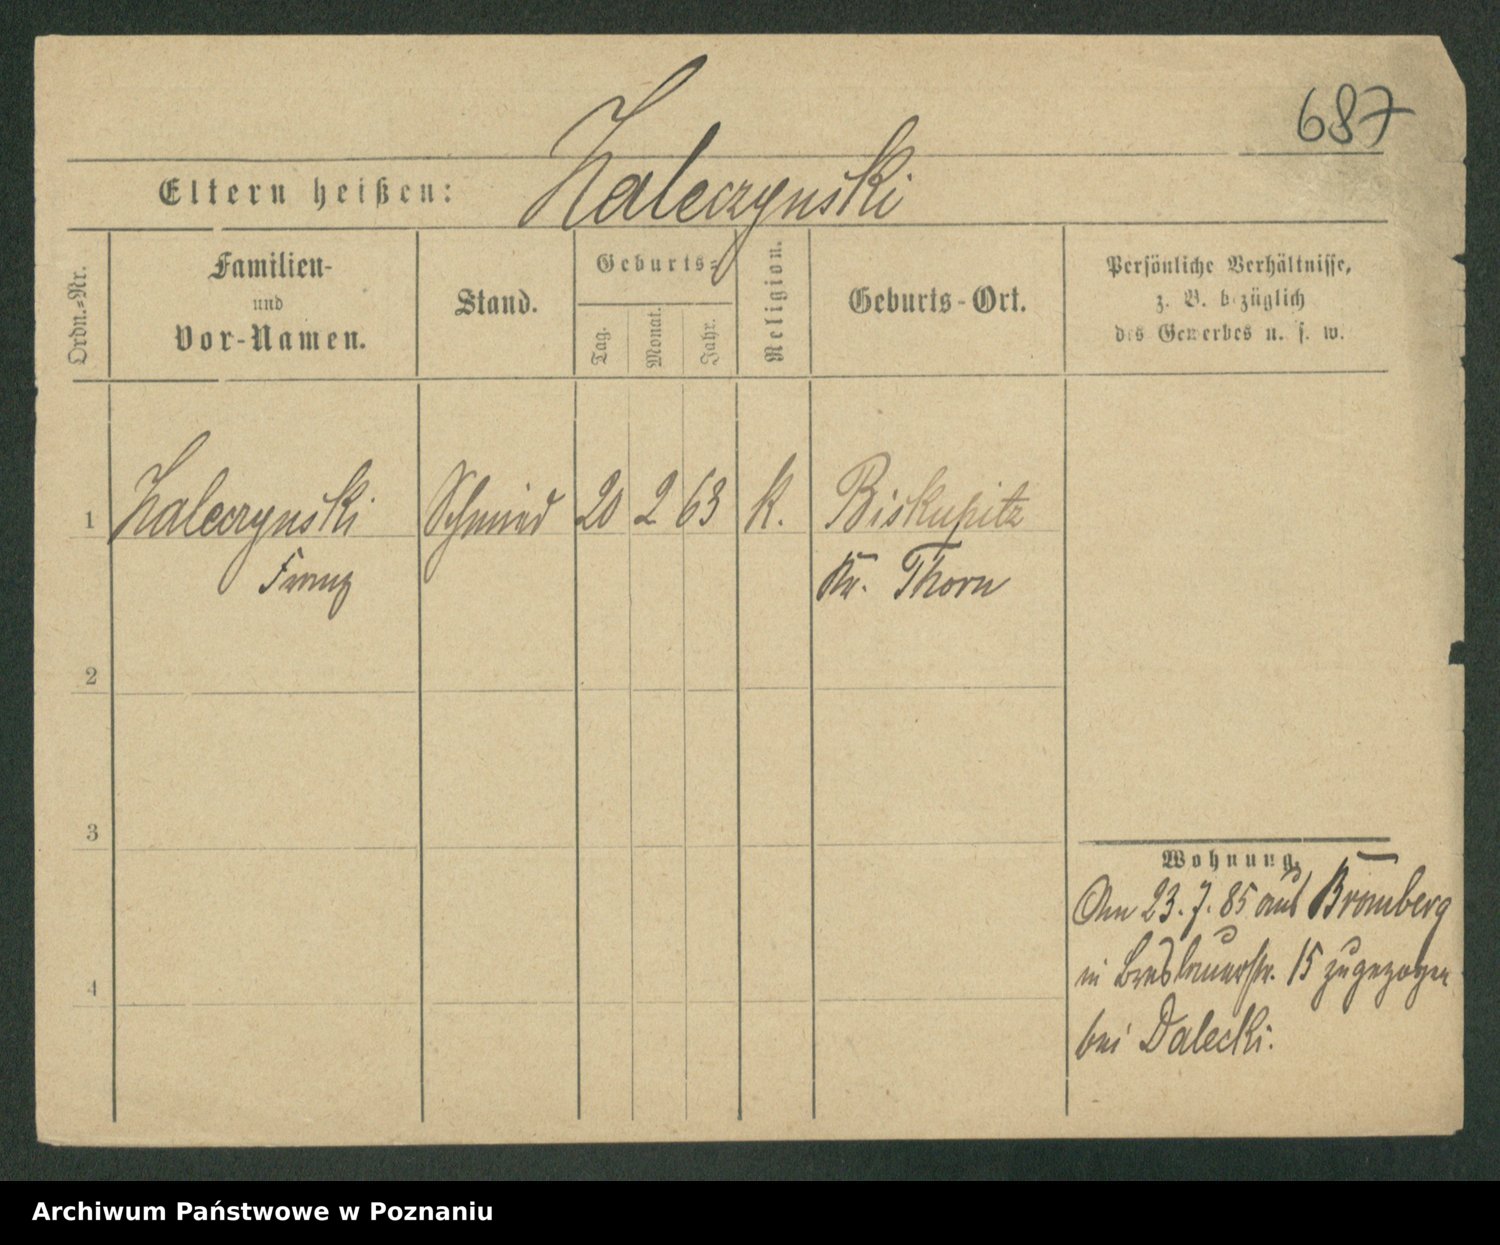 687
Eltern heißen: Zaleczynski
Ordn.-Nr.
Familien-
und
Vor-Namen.
Stand.
Geburts-
Tag.
Monat.
Jahr.
Religion.
Geburts-Ort.
Persönliche Verhältnisse,
z. B. bezüglich
des Gewerbes u. s. w.
1 Zaleczynski Schmied 20 2 63 K. Biskupitz
Franz Kr. Thorn
2
3
4
Wohnung.
Am 23.7.85 aus Bromberg
in Breslauerstr. 15 zugezogen
bei Dalecki.
Archiwum Państwowe w Poznaniu